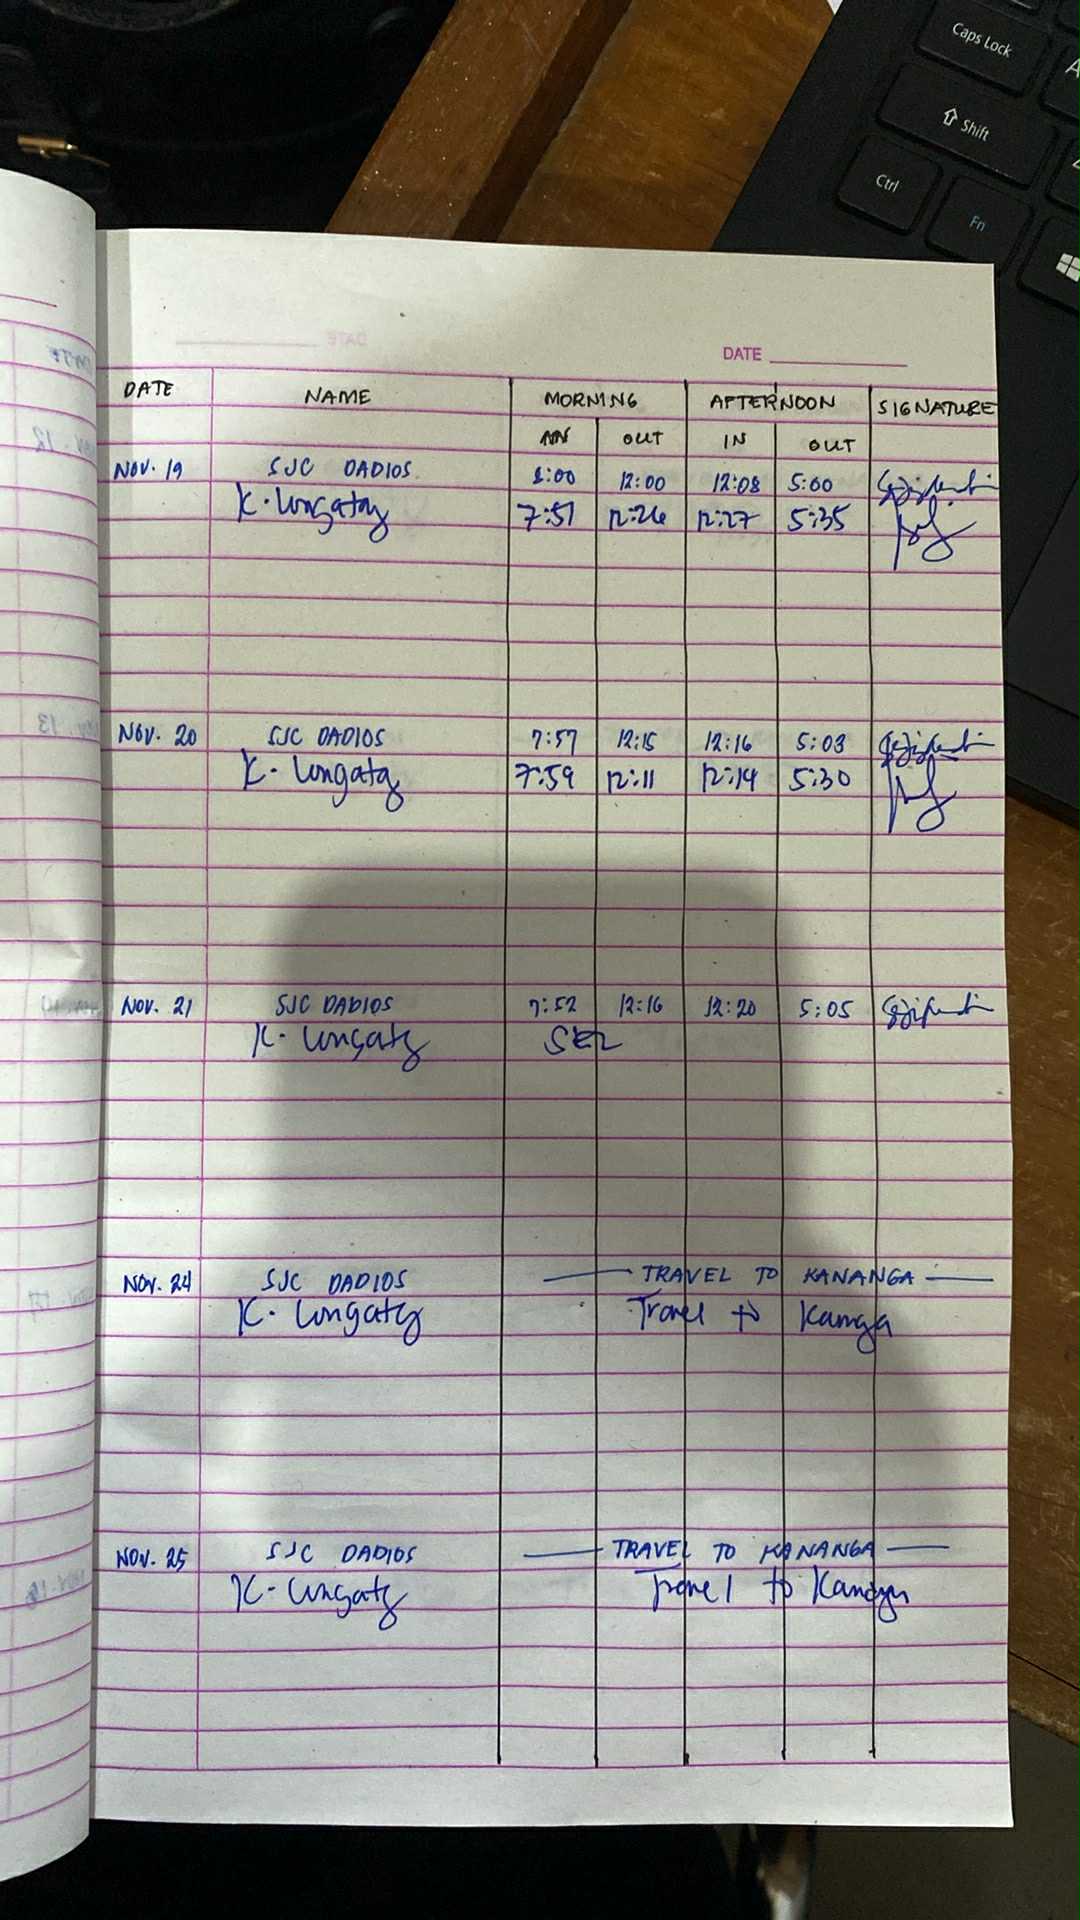 Caps Lock
A
Shift
Ctrl
Fn
DATE
DATE NAME MORNING AFTERNOON SIGNATURE
IN OUT IN OUT
NOV. 19 SJC DADIOS 8:00 12:00 12:08 5:00
K. Longatay 7:51 12:26 12:27 5:35
NOV. 20 SJC DADIOS 7:57 12:15 12:16 5:03
K. Longaty 7:59 12:11 12:14 5:30
NOV. 21 SJC DADIOS 7:52 12:16 12:20 5:05
K. Longaty
NOV. 24 SJC DADIOS TRAVEL TO KANANGA
K. Longaty Travel to Kanga
NOV. 25 SJC DADIOS TRAVEL TO KANANGA
K. Longaty Travel to